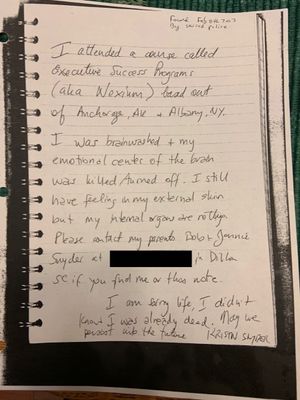 Found Feb
By
I attended a course called
Executive Success Programs
(aka Nexium) based out
of Anchorage, AK & Albany, NY.
I was brainwashed & my
emotional center of the brain
was killed/turned off. I still
have feeling in my external skin
but my internal organs are rotting.
Please contact my parents Bob & Jonnie
Snyder at in Dillon
SC if you find me or this note.
I am sorry life, I didn't
know I was already dead. May we
persist into the future KRISTIN SNYDER